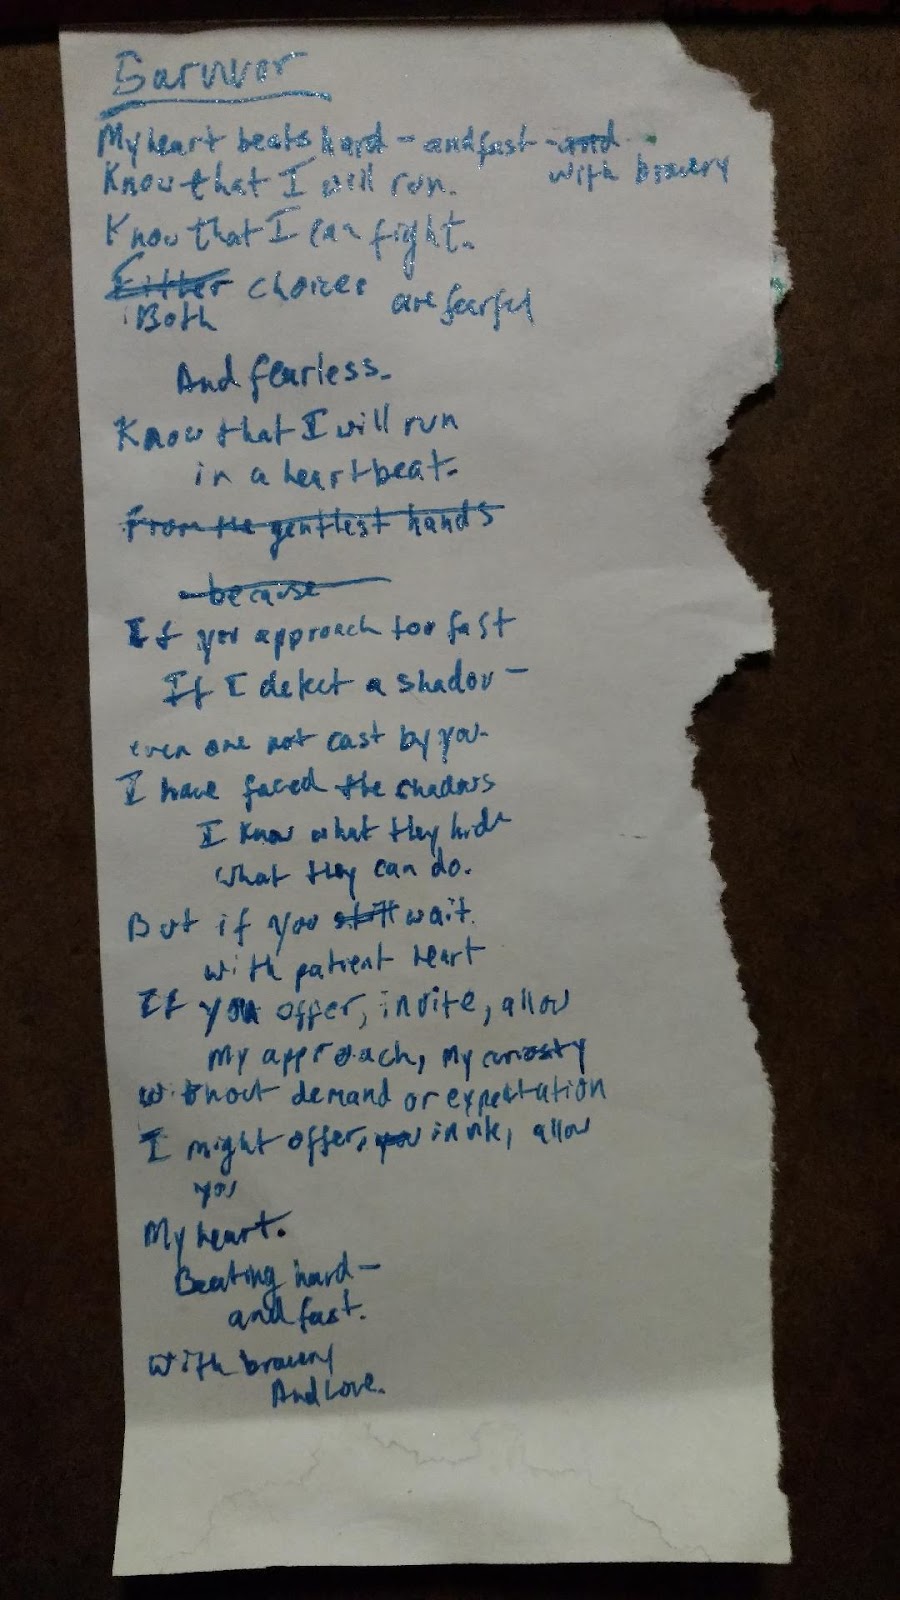 Survivor
My heart beats hard - and fast -
with bravery
Know that I will run.
Know that I can fight.
Either choices are fearful
Both
And fearless.
Know that I will run
in a heartbeat.
From the gentlest hands
because
If you approach too fast
If I detect a shadow -
even one not cast by you.
I have faced the shadows
I know what they hide
what they can do.
But if you still wait
with patient heart
If you offer, invite, allow
My approach, my curiosty
without demand or expectation
I might offer, you invite, allow
you
My heart.
Beating hard -
and fast.
with bravery
And Love.